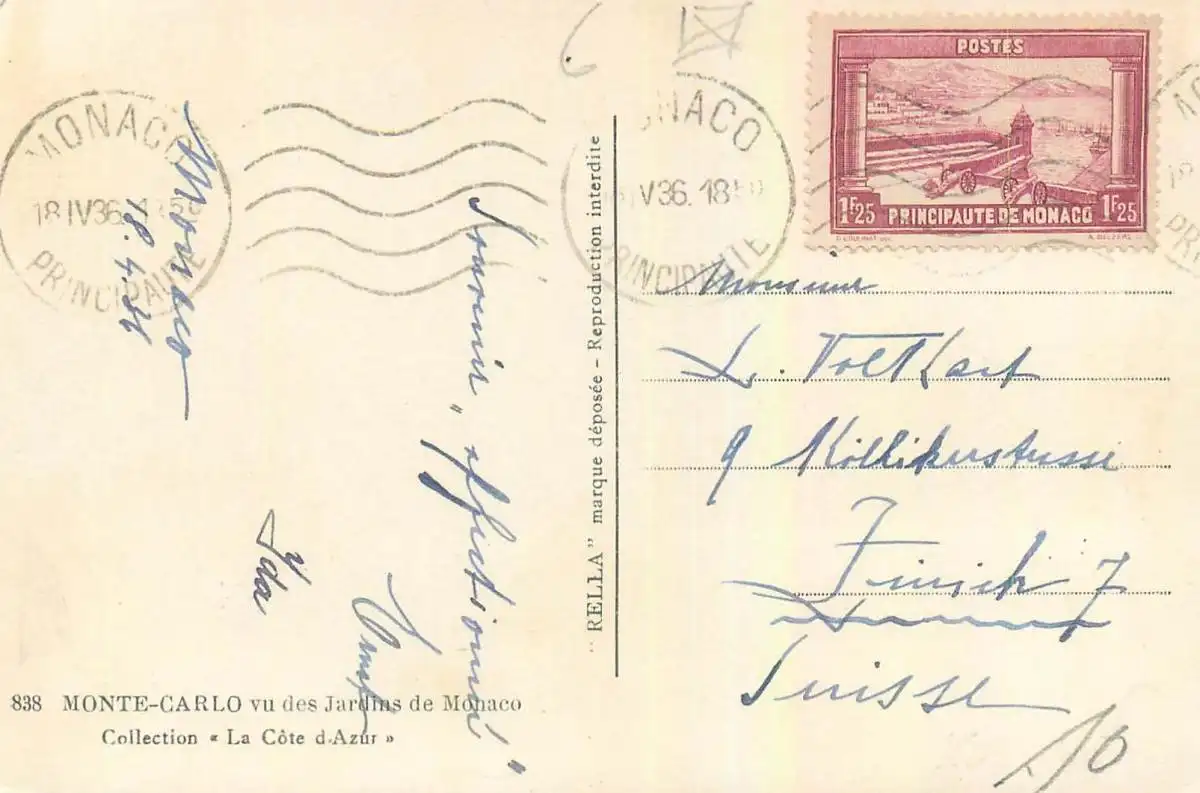 MONACO
18 IV 36
PRINCIPAUTE
Monaco
18. 4. 36
Souvenir „ affectionné "
Ida
838 MONTE-CARLO vu des Jardins de Monaco
Collection « La Côte d'Azur »
" RELLA " marque déposée – Reproduction interdite
MONACO
IV 36. 18
PRINCIPAUTE
POSTES
1F25 PRINCIPAUTE DE MONACO 1F25
Monsieur
L. Volkart
9 Köllikerstrasse
Zürich 7
Suisse
10